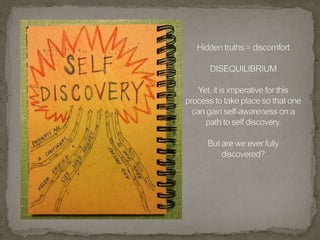 SELF
DISCOVERY
Hidden truths = discomfort
DISEQUILIBRIUM
Yet, it is imperative for this
process to take place so that one
can gain self-awareness on a
path to self discovery.
But are we ever fully
discovered?